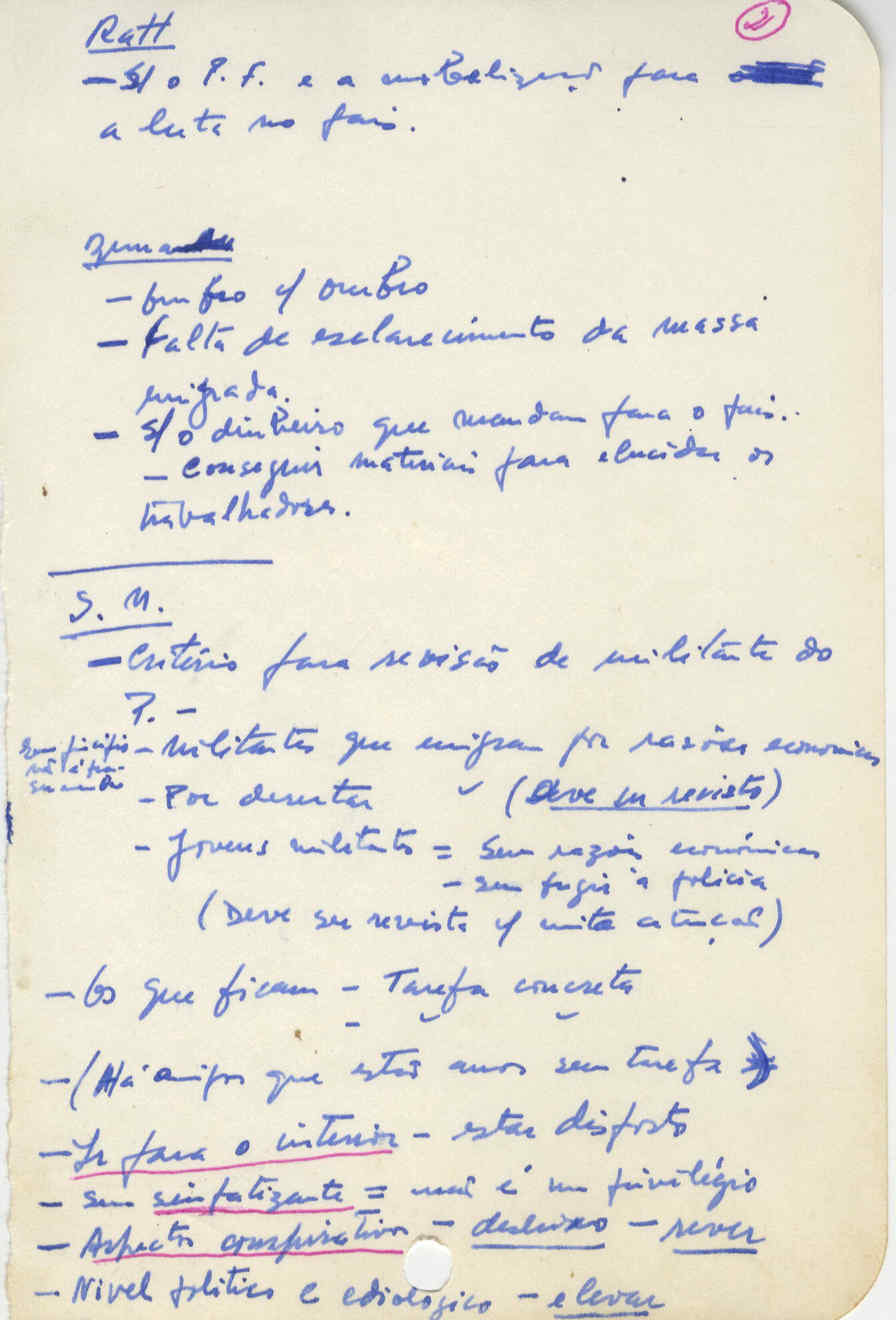 2
Ratt
- S/ o P. F. e a mobilização para
a luta no país.
Zuma
- Ombro c/ ombro
- Falta de esclarecimento da massa
emigrada.
- S/ o dinheiro que mandam para o país..
- Conseguir materiais para elucidar os
trabalhadores.
S. M.
- Critério para revisão de militante do
P. -
- Militantes que emigram por razões económicas
- Por desertar (Deve ser revisto)
- Jovens militantes = Sem razões económicas
- sem fugir à polícia
(Deve ser revista c/ muita atenção)
- Os que ficam - Tarefa concreta
- (Há amigos que estão anos sem tarefa)
- Ir para o interior - estar disposto
- Ser simpatizante = não é um privilégio
- Aspectos conspirativos - desleixo - rever
- Nível político e ediológico - elevar